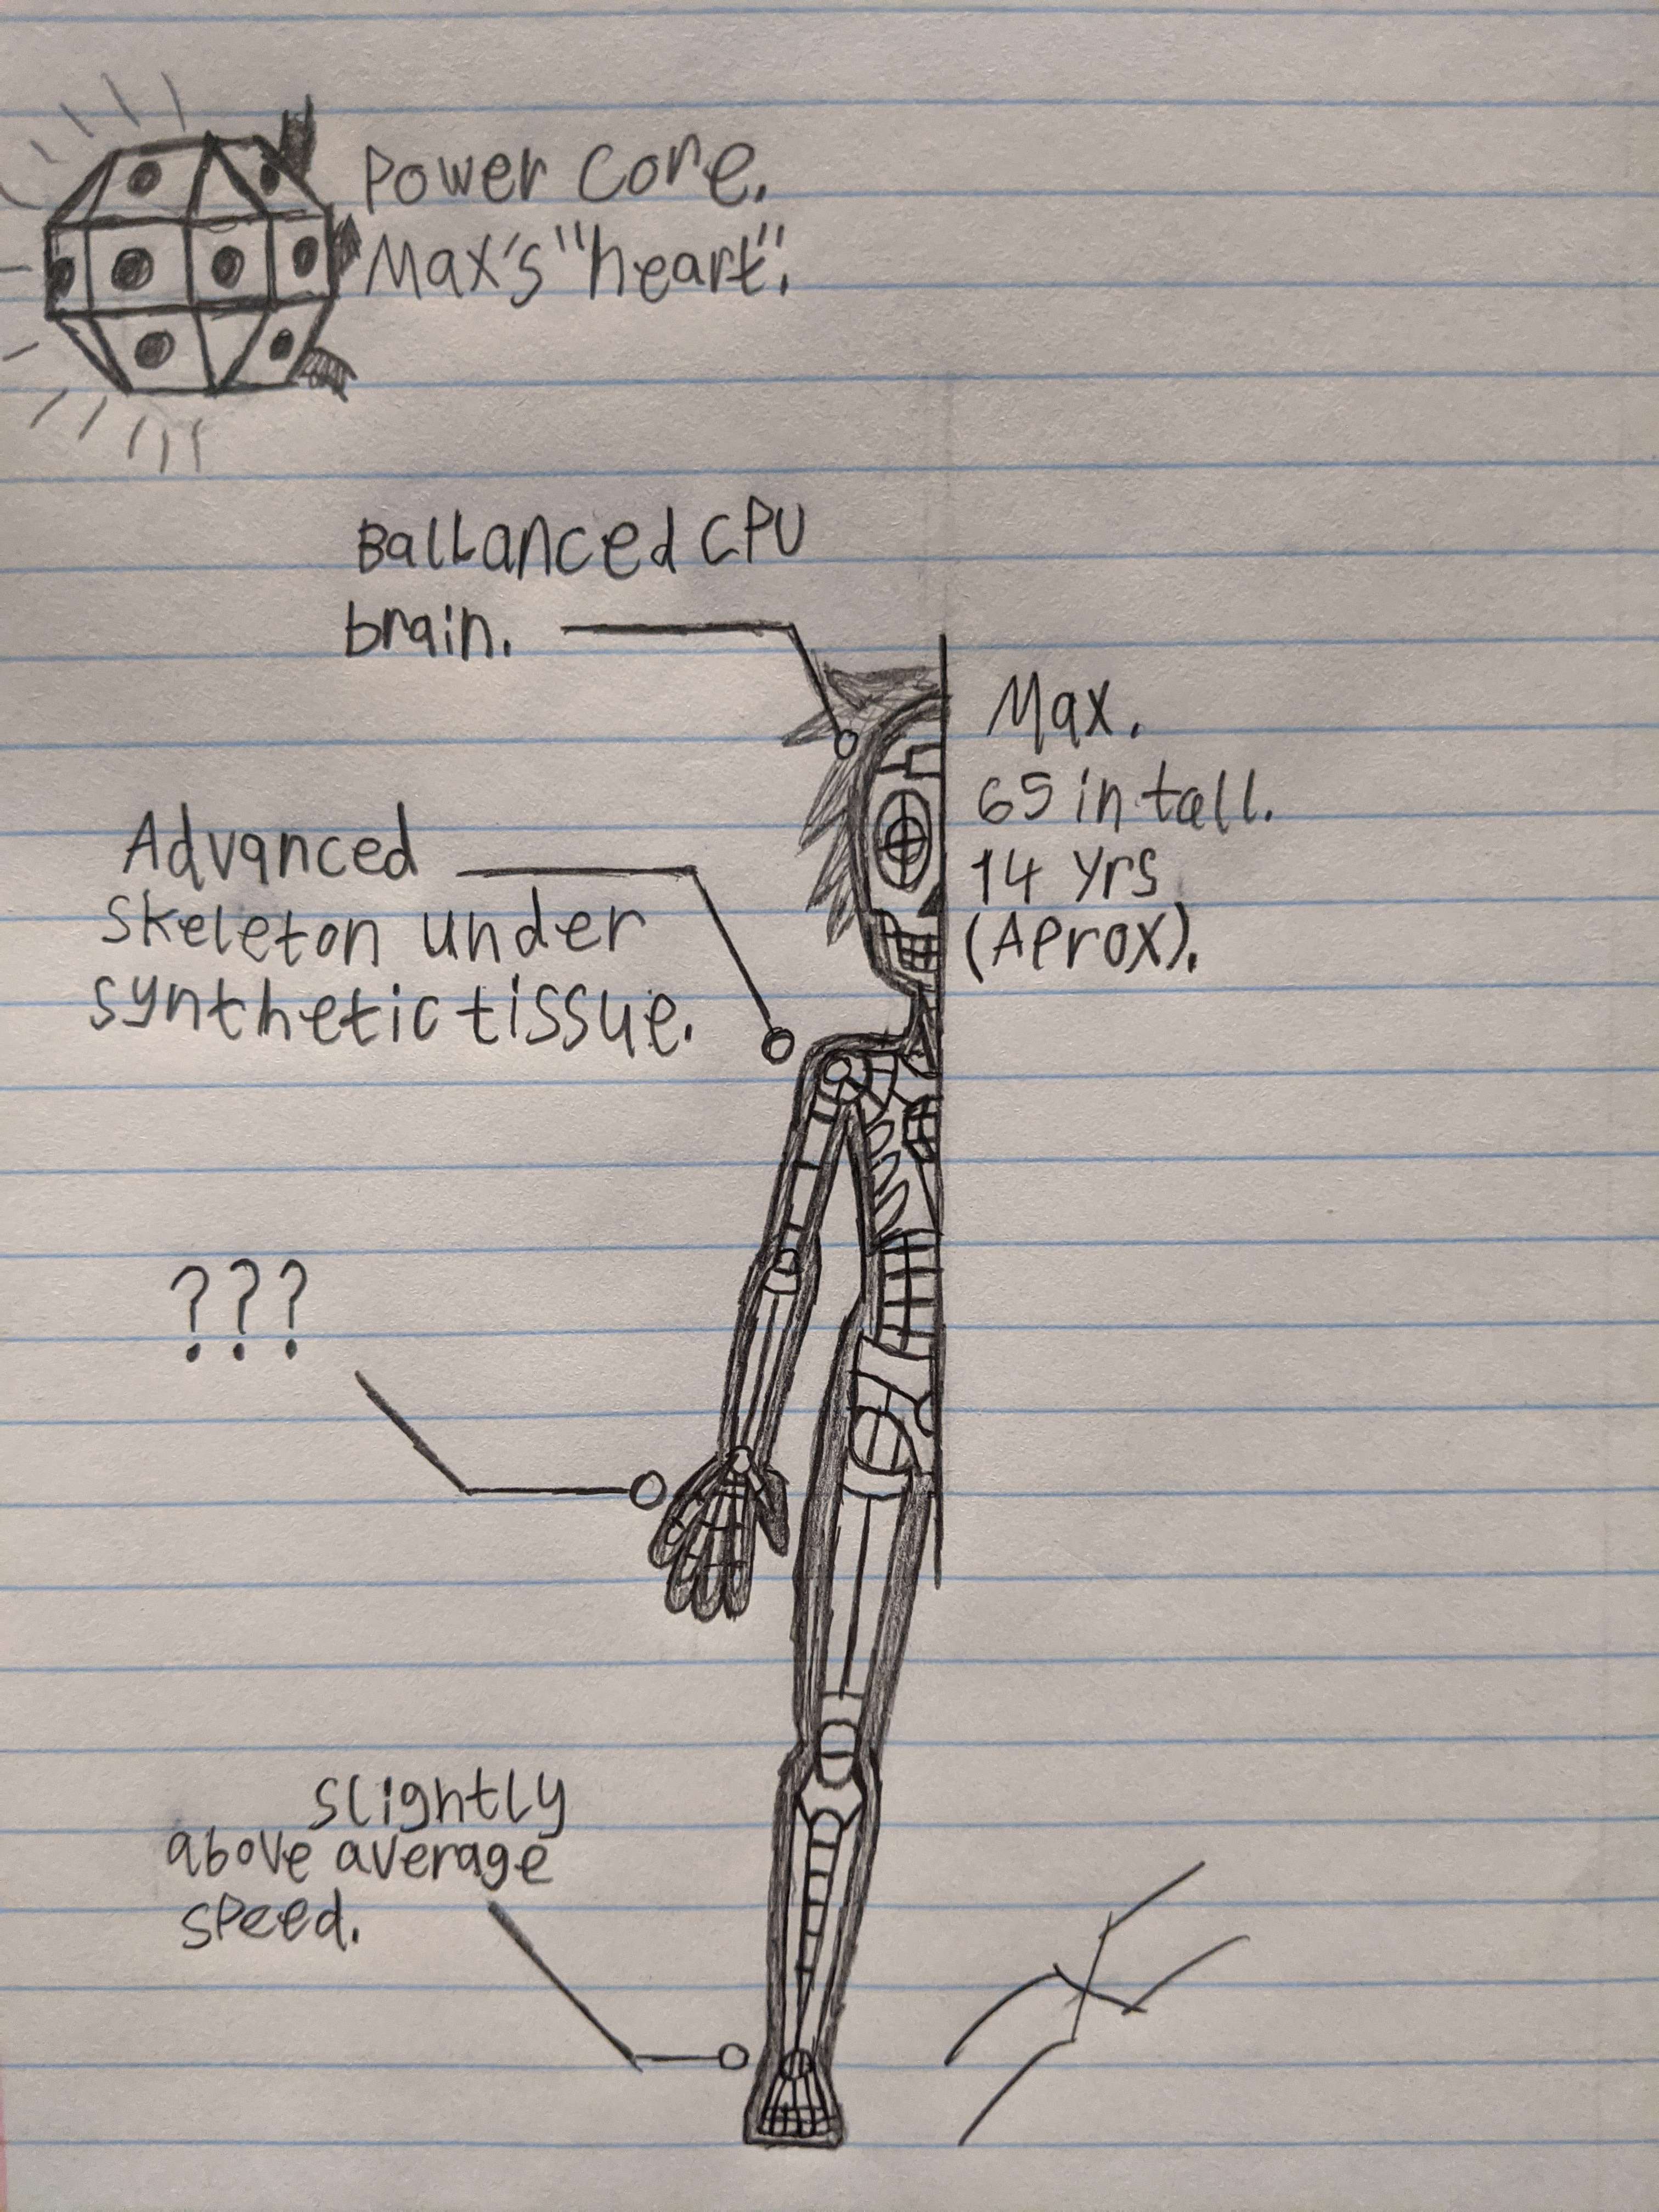 Power core.
Max's "heart".
Ballanced CPU
brain.
Max.
65 in tall.
14 yrs
(Aprox).
Advanced
skeleton under
synthetic tissue.
???
slightly
above average
speed.